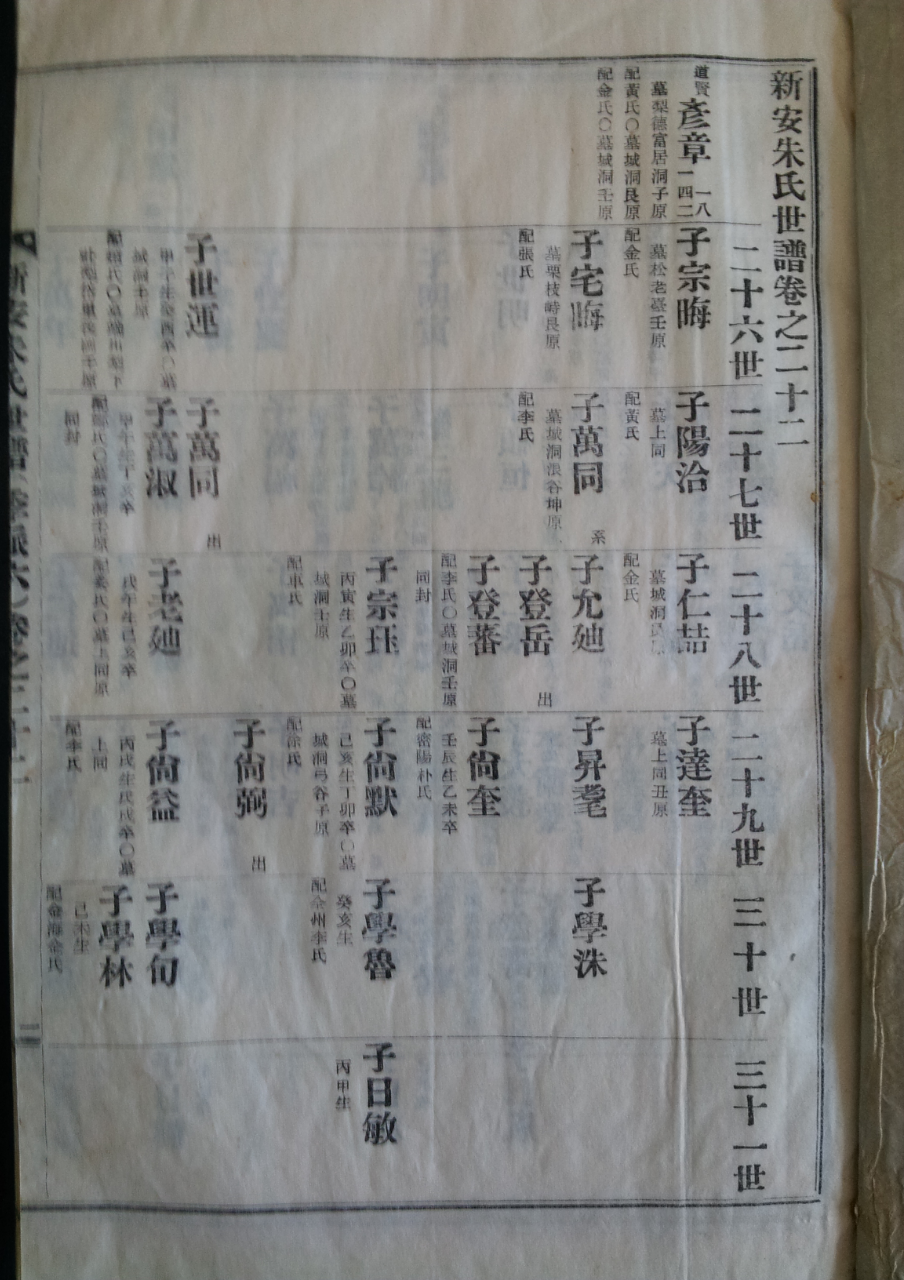 新安朱氏世譜卷之二十二
二十六世
二十七世
二十八世
二十九世
三十世
三十一世
道賢
彥章
一八
一四二
墓梨德富居洞子原
配黃氏〇墓城洞艮原
配金氏〇墓城洞壬原
子宗晦
墓松老臺壬原
配金氏
子宅晦
墓栗枝峙艮原
配張氏
子世運
子陽洽
墓上同
配黃氏
子萬同
系
墓城洞 谷坤原
配李氏
子萬同
出
子萬淑
同封
子仁喆
墓城洞
配金氏
子允迪
子登岳
出
子登蕃
配李氏〇墓城洞壬原
同封
子宗珏
丙寅生乙卯卒〇墓
城洞壬原
配車氏
子老迪
戊午生己亥卒
墓上同原
子達奎
墓上同丑原
子昇耄
子尙奎
壬辰生乙未卒
配密陽朴氏
子尙默
己亥生丁卯卒〇墓
城洞弓谷子原
配徐氏
子尙弼
出
子尙益
丙戌生 戌卒〇墓
上同
配李氏
子學洙
子學魯
癸亥生
配全州李氏
子學旬
子學林
己未生
配金海金氏
子日敏
丙甲生
新安朱氏世譜 卷之二十二
二